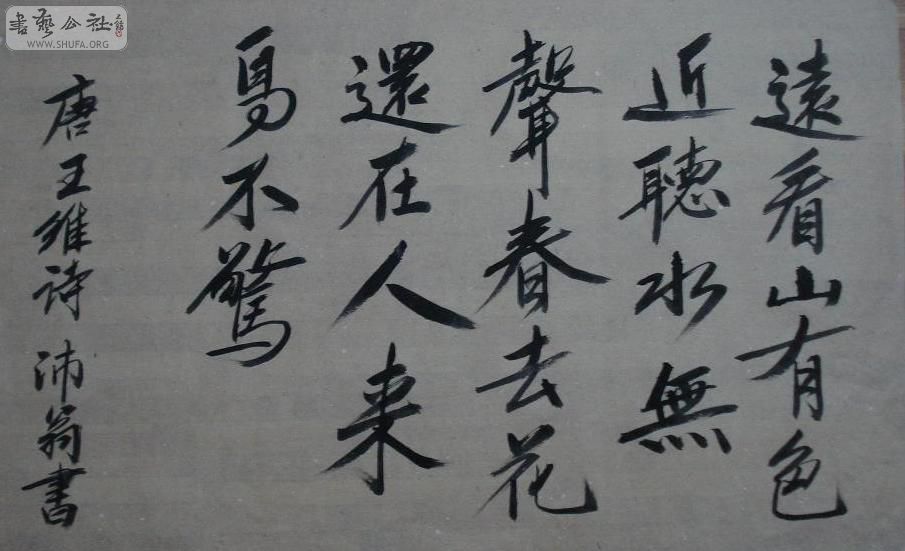 遠看山有色
近聽水無
聲春去花
還在人来
鳥不驚
唐王維诗 沛翁書
書藝公社
WWW.SHUFA.ORG